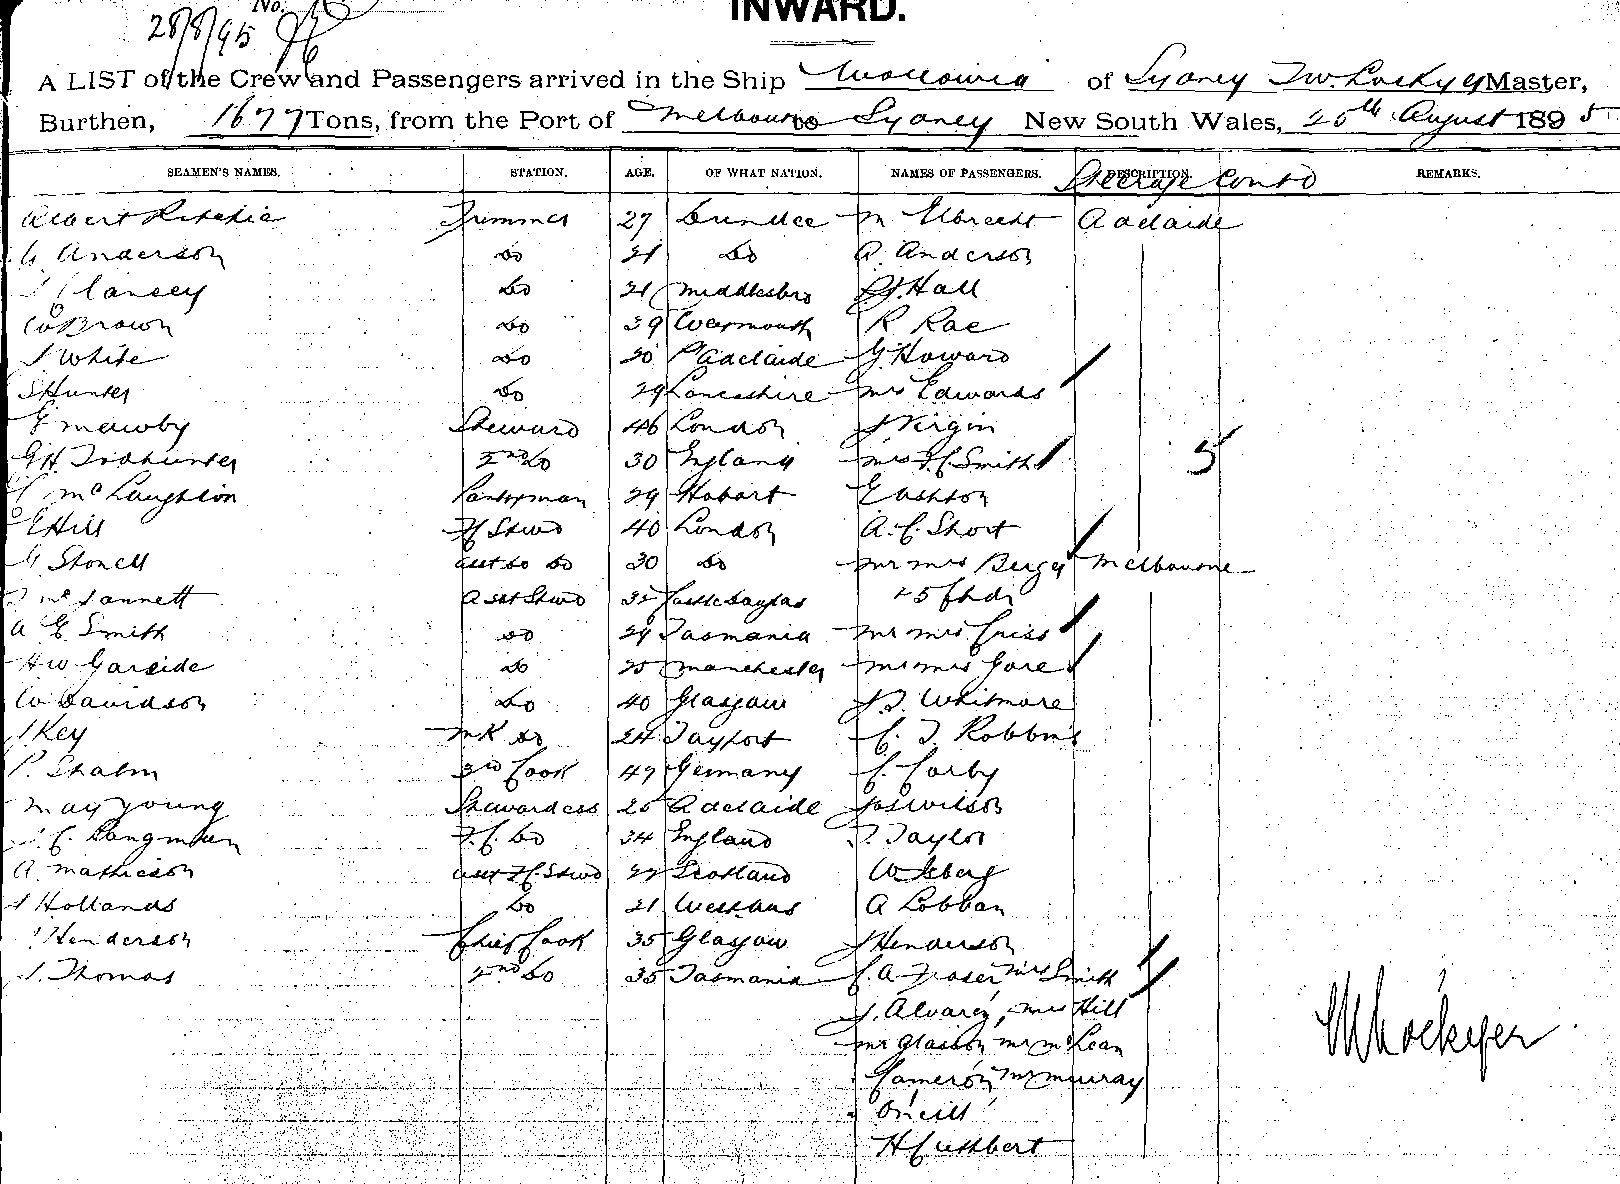 INWARD.
28/8/95 No.
A LIST of the Crew and Passengers arrived in the Ship Wollowra of Sydney Master,
Burthen, 1677 Tons, from the Port of Melbourne to Sydney New South Wales, 25th August 1895
SEAMEN'S NAMES. STATION. AGE. OF WHAT NATION. NAMES OF PASSENGERS. DESCRIPTION. REMARKS.
Steerage Contd
Albert Ritchie Trimmer 27 Dundee M Elbrecht Adelaide
Anderson Do 21 Do A. Anderson
Clancey Do 21 Middlesbro Hall
W Brown Do 39 Warmouth R Rae
J White Do 20 Pt Adelaide G Howard
S Hunter Do 29 Lancashire Mrs Edwards
Mawby Steward 46 London J Virgin
G H Todhunter 2nd Do 30 England Mrs Smith
McLaughlin Pantryman 29 Hobart E Ashton
E Hill F C Stwd 40 London A. C. Short
Stonell asst Do Do 30 Do Mr Mrs Berger Melbourne
asst Stwd
A E Smith Do 29 Tasmania Mr Mrs Criss
H W Garside Do 25 Manchester Mr Mrs Gore
W Davidson Do 40 Glasgow Whitmore
J Key Do 24 Tayport C. J. Robbins
P. 3rd Cook 47 Germany C. Corby
May Young Stewardess 25 Adelaide Jas Wilson
Langman F. C. Do 34 England J. Taylor
A. Mathieson asst F.C. Stwd 22 Scotland W
J Hollands Do 21 West Aus A Lobban
J Henderson Chief Cook 35 Glasgow J Henderson
J. Thomas 2nd Do 35 Tasmania C. A Fraser Mrs Smith
J. Alvarez, Mrs Hill
Mr Glasson Mr McLean
Cameron Mr Murray
O'Neill
H Cuthbert
5